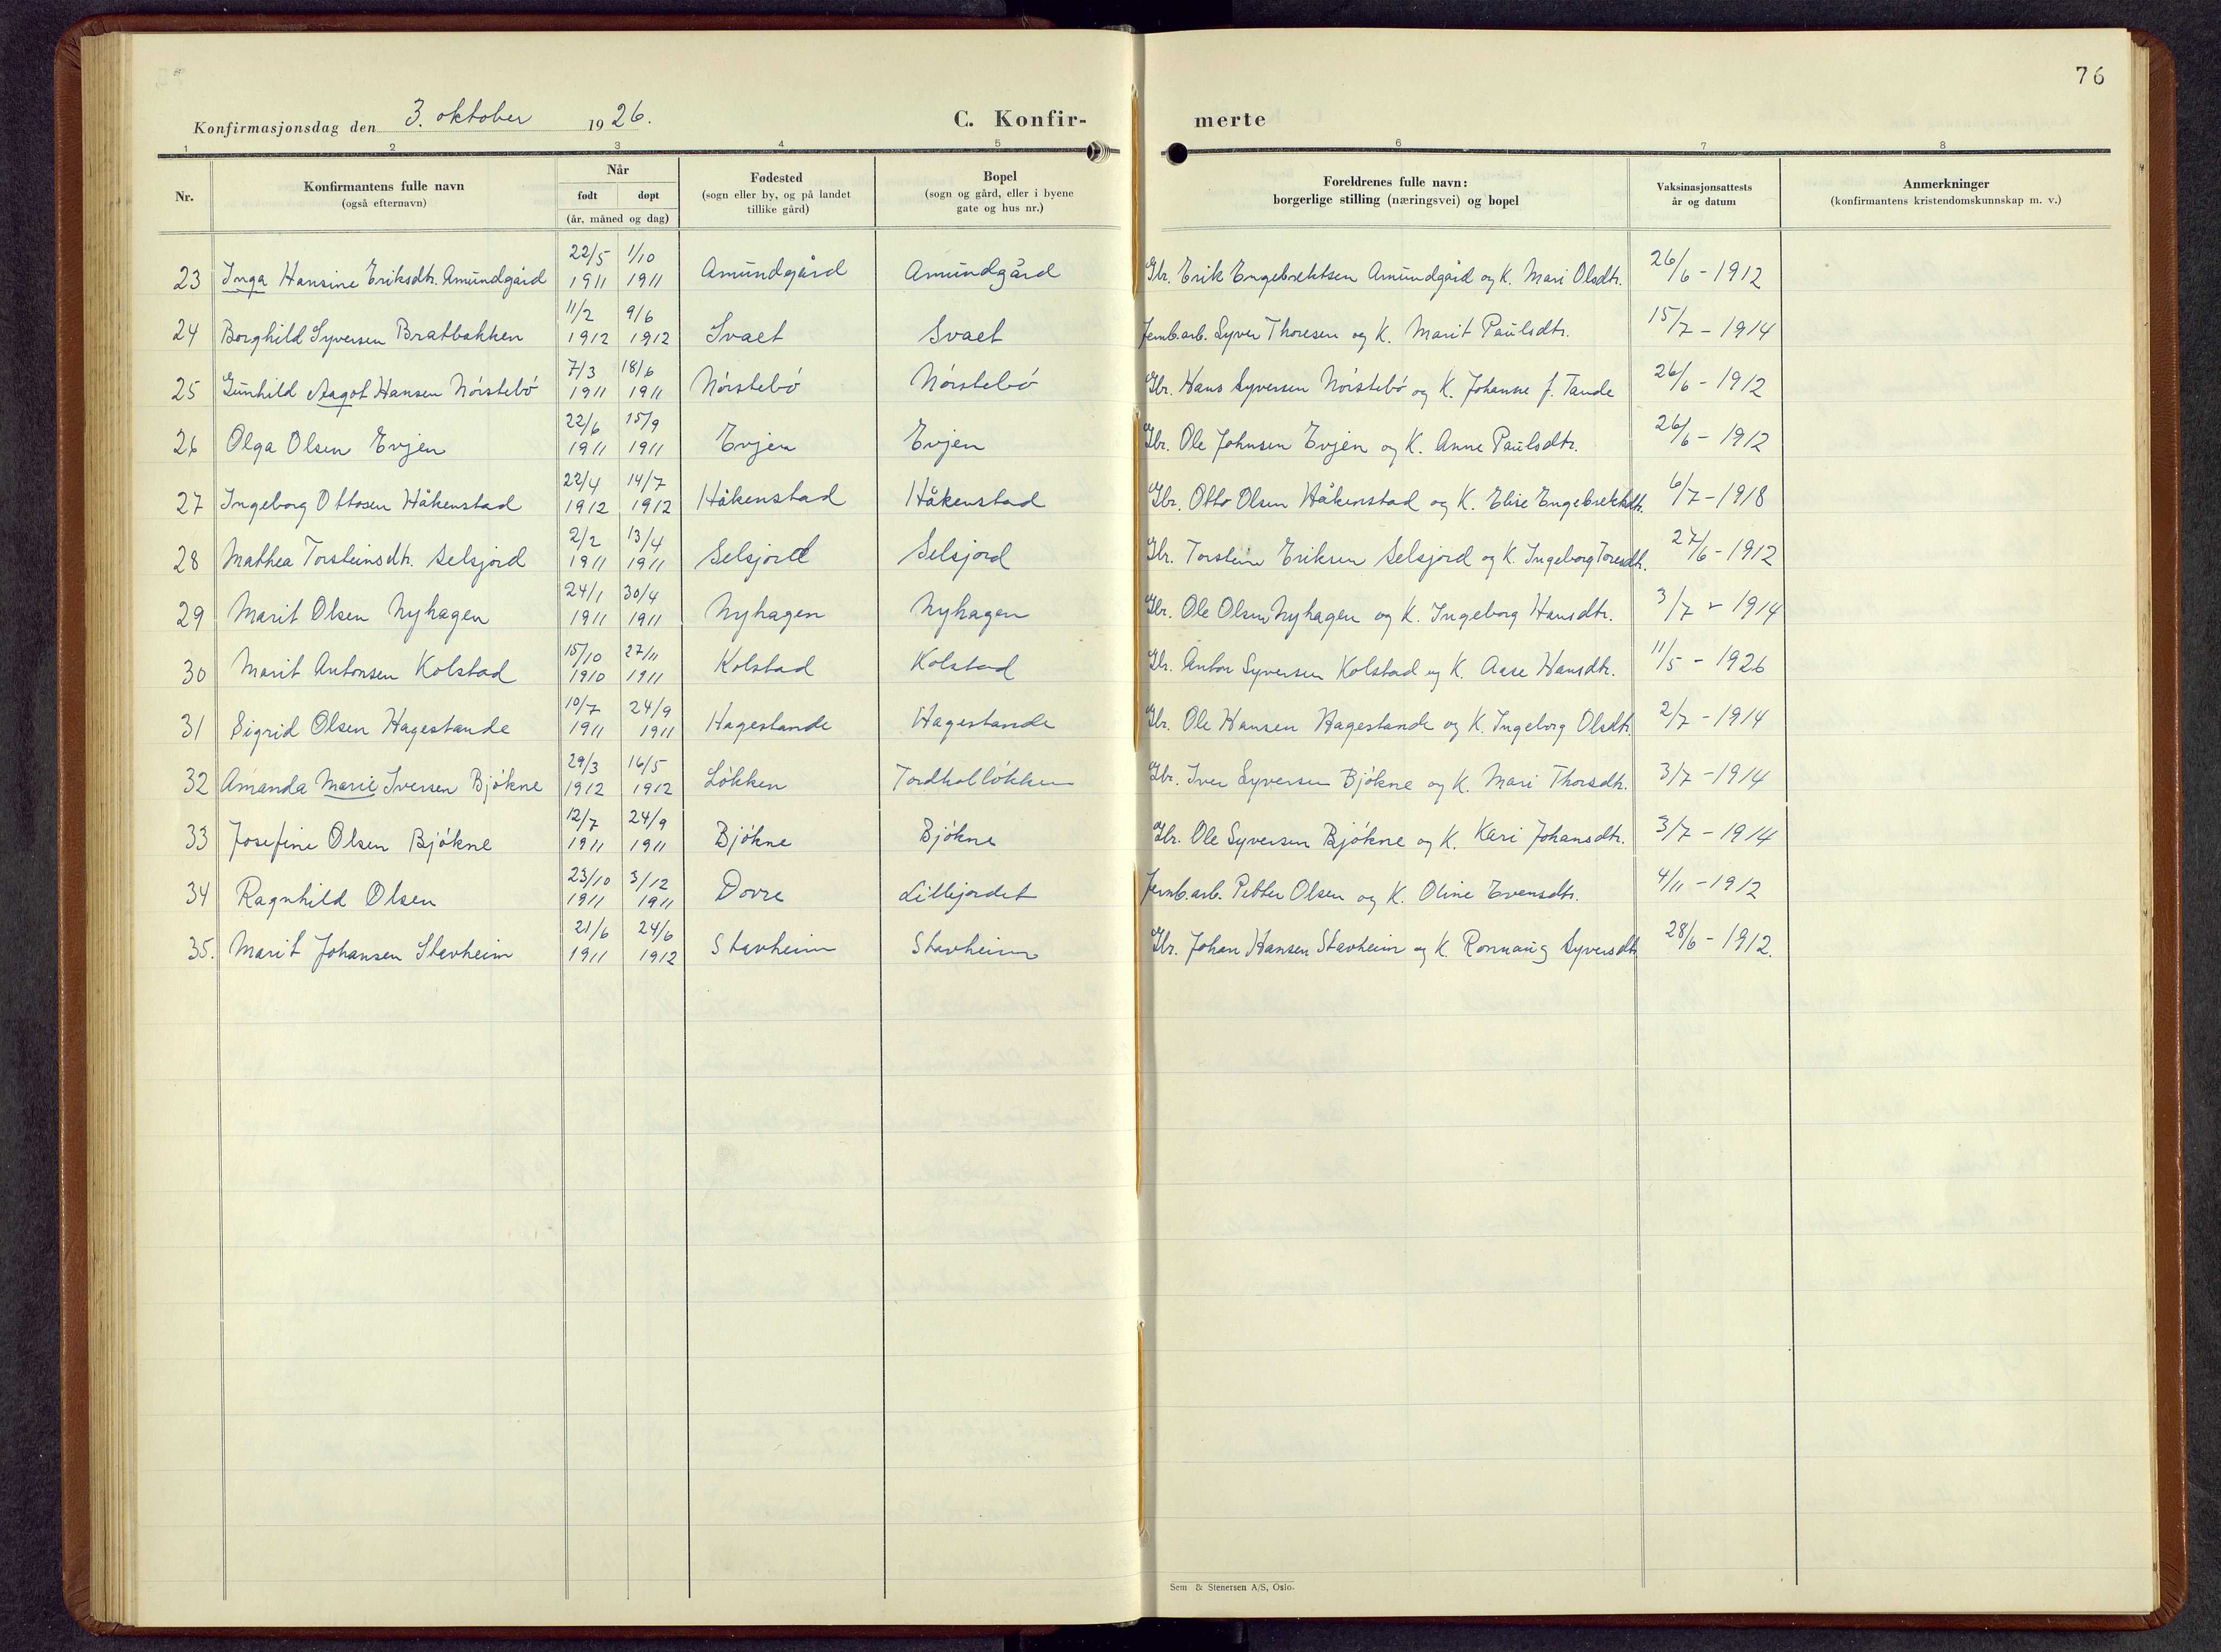 76
Konfirmasjonsdag den 3. oktober 1926. C. Konfir- merte
1 2 3 4 5 6 7 8
Nr. Konfirmantens fulle navn (også efternavn) Når født døpt (år, måned og dag) Fødested (sogn eller by, og på landet tillike gård) Bopel (sogn og gård, eller i byene gate og hus nr.) Foreldrenes fulle navn: borgerlige stilling (næringsvei) og bopel Vaksinasjonsattests år og datum Anmerkninger (konfirmantens kristendomskunnskap m. v.)
23 Inga Hansine Eriksdtr. Amundgård 22/5 1911 1/10 1911 Amundgård Amundgård Gbr. Erik Engebrektsen Amundgård og K. Mari Olsdtr. 26/6 - 1912
24 Borghild Syversen Bratbakken 11/2 1912 9/6 1912 Svaet Svaet Jernb.arb. Syver Thoresen og K. Marit Paulsdtr. 15/7 - 1914
25 Gunhild Aagot Hansen Nörstebö 7/3 1911 18/6 1911 Nörstebö Nörstebö Gbr. Hans Syversen Nörstebö og K. Johanne f. Tande 26/6 - 1912
26 Olga Olsen Evjen 22/6 1911 15/9 1911 Evjen Evjen Gbr. Ole Johnsen Evjen og K. Anne Paulsdtr. 26/6 - 1912
27 Ingeborg Ottosen Håkenstad 22/4 1912 14/7 1912 Håkenstad Håkenstad Gbr. Otto Olsen Håkenstad og K. Elise Engebrektsdtr. 6/7 - 1918
28 Mathea Torsteinsdtr. Selsjord 2/2 1911 13/4 1911 Selsjord Selsjord Gbr. Torstein Eriksen Selsjord og K. Ingeborg Toresdtr. 27/6 - 1912
29 Marit Olsen Nyhagen 24/1 1911 30/4 1911 Nyhagen Nyhagen Gbr. Ole Olsen Nyhagen og K. Ingeborg Hansdtr. 3/7 - 1914
30 Marit Antonsen Kolstad 15/10 1910 27/11 1911 Kolstad Kolstad Gbr. Anton Syversen Kolstad og K. Aase Hansdtr. 11/5 - 1926
31 Sigrid Olsen Hagestande 10/7 1911 24/9 1911 Hagestande Hagestande Gbr. Ole Hansen Hagestande og K. Ingeborg Olsdtr. 2/7 - 1914
32 Amanda Marie Iversen Bjökne 29/3 1912 16/5 1912 Lökken Tordhollökken Gbr. Iver Syversen Bjökne og K. Mari Thorsdtr. 3/7 - 1914
33 Josefine Olsen Bjökne 12/7 1911 24/9 1911 Bjökne Bjökne Gbr. Ole Syversen Bjökne og K. Kari Johansdtr. 3/7 - 1914
34 Ragnhild Olsen 23/10 1911 3/12 1911 Dovre Lillejordet Jernb.arb. Petter Olsen og K. Oline Evensdtr. 4/11 - 1912
35. Marit Johansen Stavheim 21/6 1911 24/6 1912 Stavheim Stavheim Gbr. Johan Hansen Stavheim og K. Ronnaug Syversdtr. 28/6 - 1912.
Sem & Stenersen A/S, Oslo.